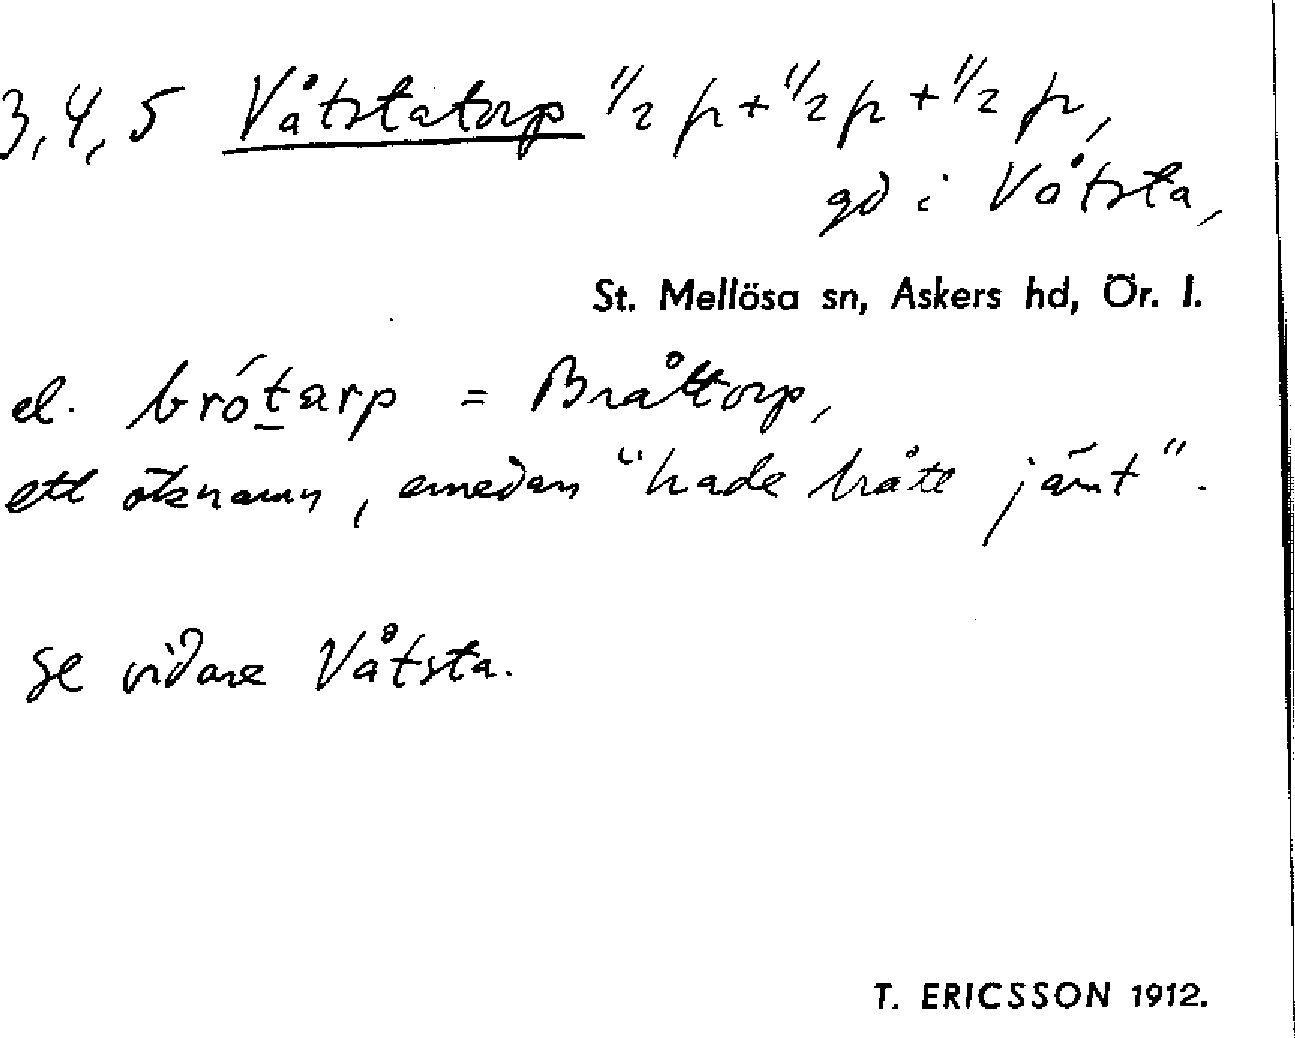 3, 4, 5 Våtstatorp 1/2 p + 1/2 p + 1/2 p,
gd i Våtsta,
St. Mellösa sn, Askers hd, Ör. l.
el. brótarp = Bråttorp,
ett öknamn, emedan "hade brått jämt".
se vidare Våtsta.
T. ERICSSON 1912.